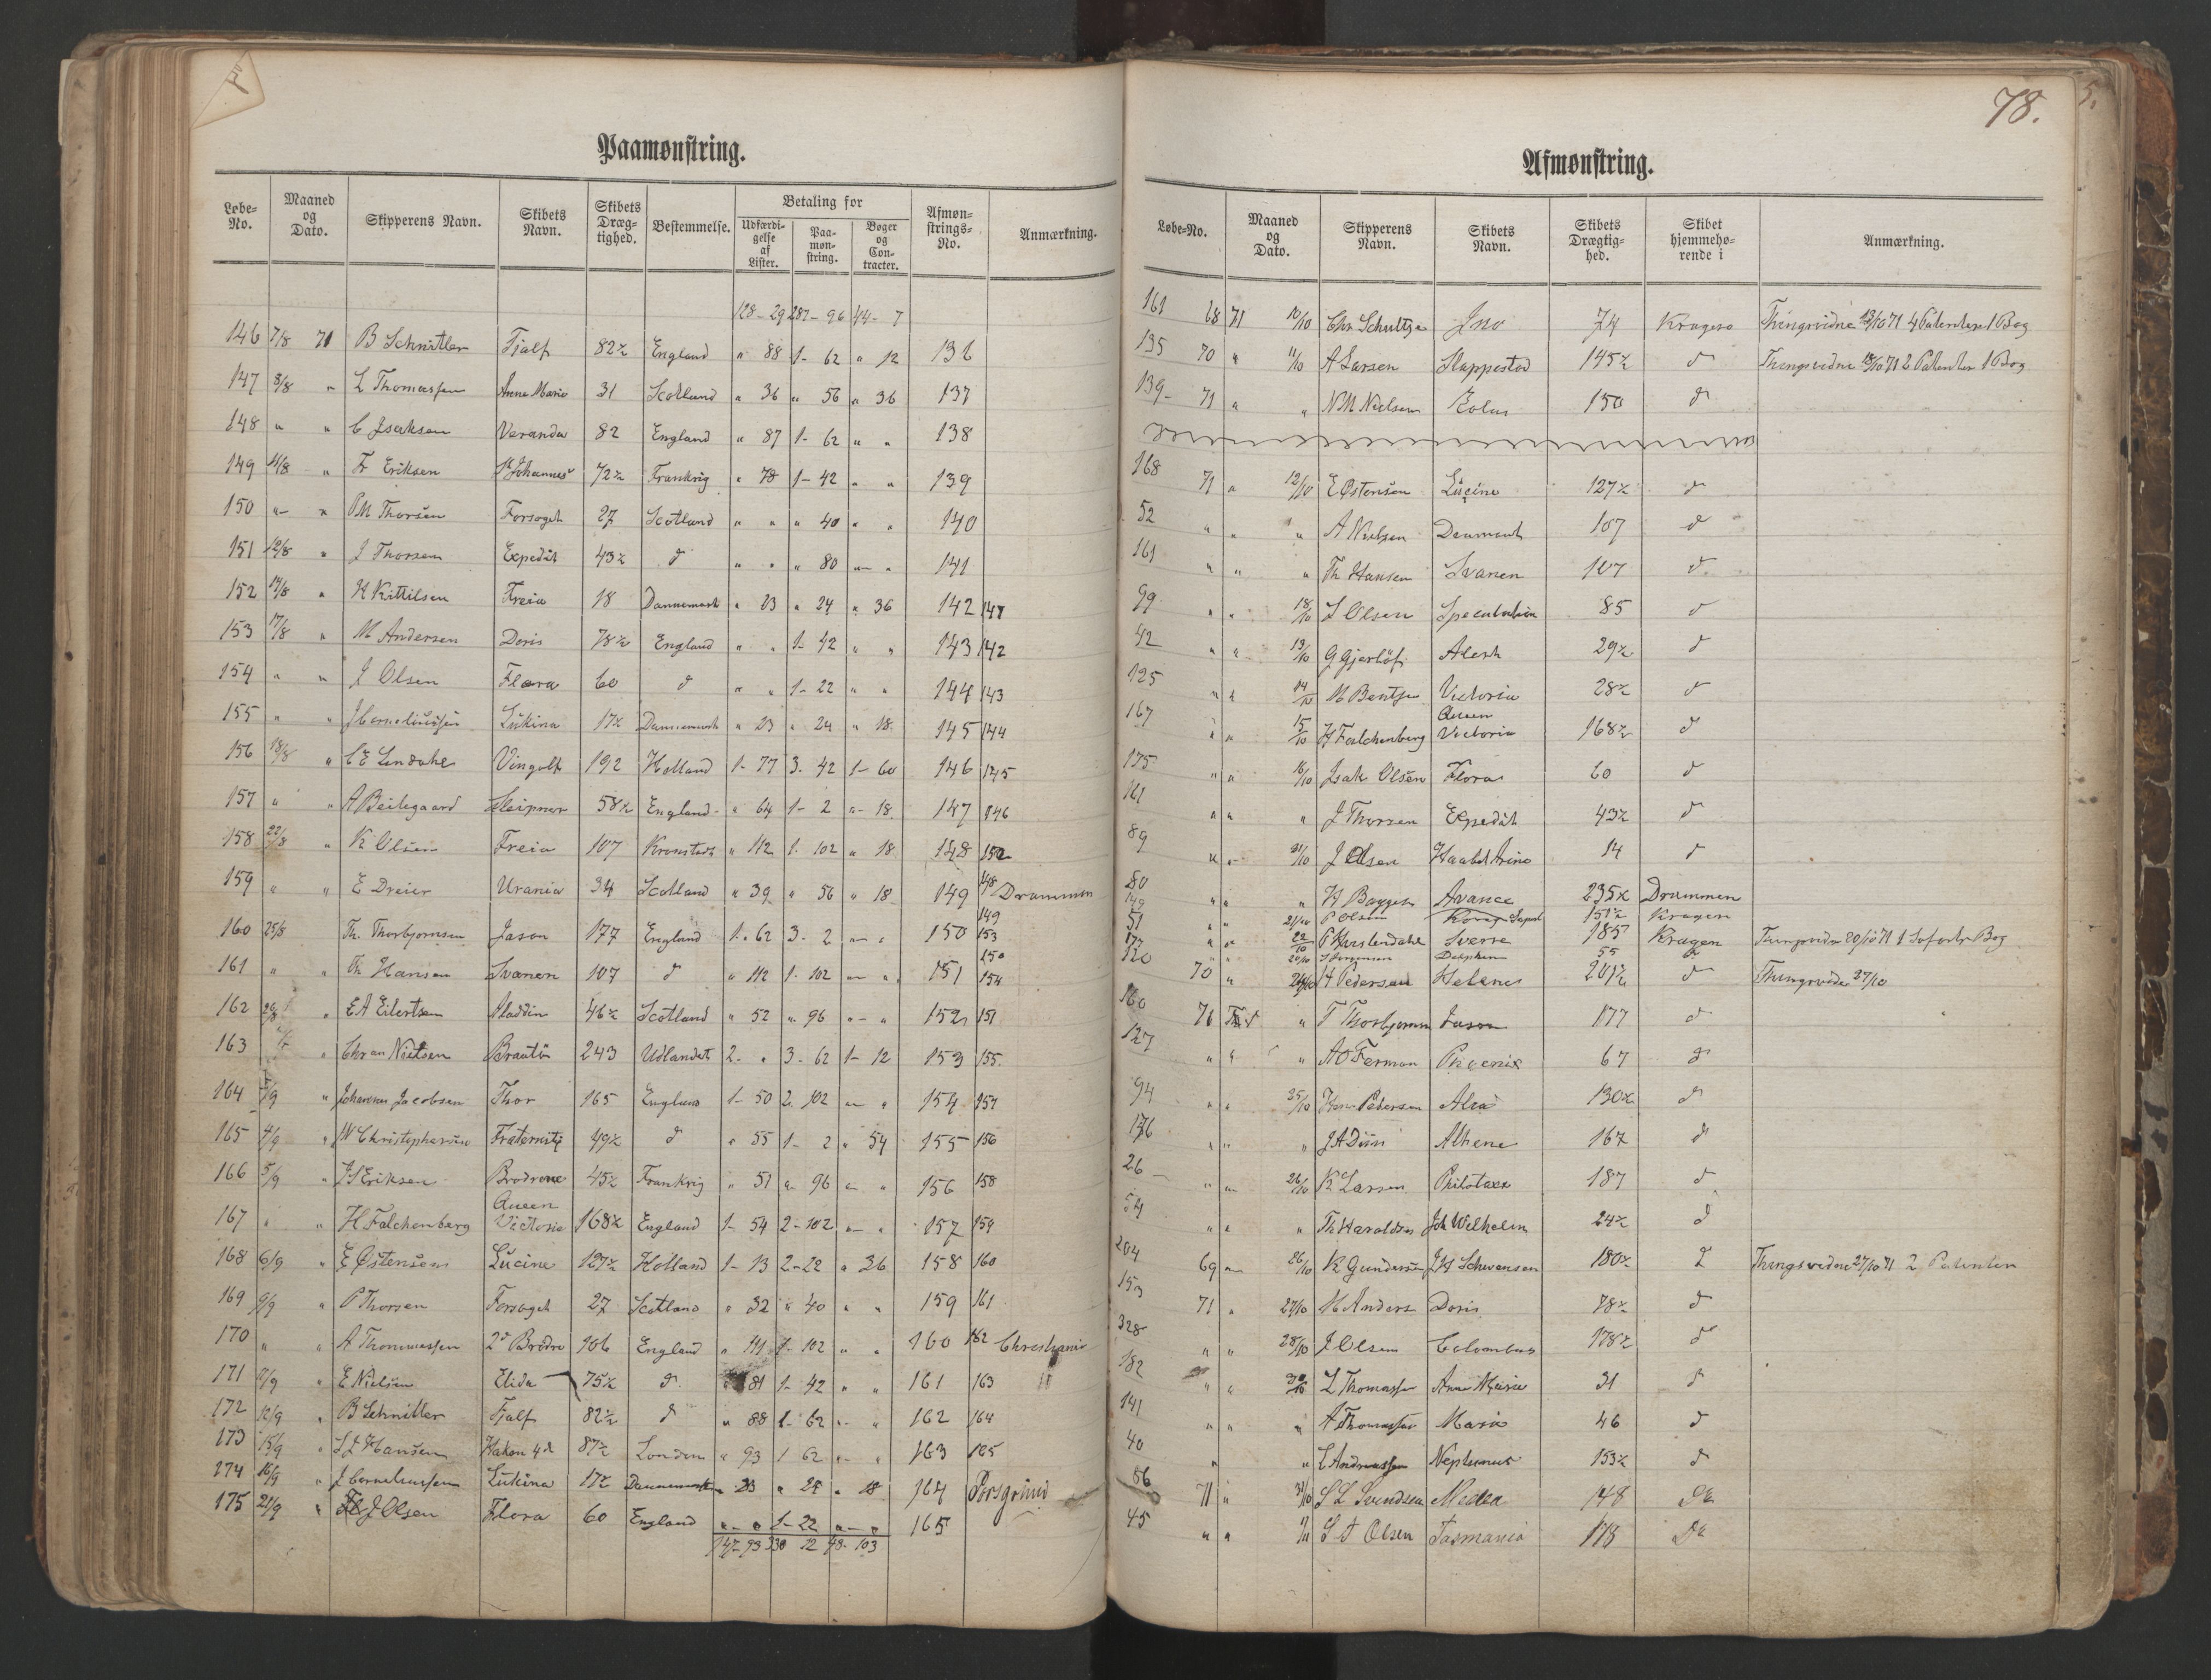 78.
Paamønstring.
Løbe-No. Maaned og Dato. Skipperens Navn. Skibets Navn. Skibets Dræg-tighed. Bestemmelse. Betaling for Udfærdi-gelse af Lister. Paa-møn-string. Bøger og Con-tracter. Afmøn-strings-No. Anmærkning.
128-29 287-96 44-7
146 7/8 71 B Schnitler Fjalf 82½ England " 88 1- 62 " 12 136
147 8/8 " L Thomassen Anna Maria 31 Scotland " 36 " 56 " 36 137
148 " " C Isaksen Veranda 82 England " 87 1- 62 " " 138
149 11/8 " Fr Eriksen St Johannes 72½ Frankrig " 78 1- 42 " " 139
150 " " PM Thorsen Forsøget 27 Scotland " " " 40 " " 140
151 12/8 " J Thorsen Expedit 43½ d " " " 80 " " 141
152 14/8 " K Kittilsen Freia 18 Dannemark " 23 " 24 " 36 142 147
153 17/8 " M Andersen Doris 78½ England " " 1- 42 " " 143 142
154 " " J Olsen Flora 60 d " " 1- 22 " " 144 143
155 " " J Corneliussen Lukina 17½ Dannemark " 23 " 24 " 18 145 144
156 18/8 " C E Lindahl Vingolf 192 Holland 1- 77 3- 42 1- 60 146 145
157 " " A Beilegaard Sleipner 58½ England " 64 1- 2 " 18 147 146
158 22/8 " K Olsen Freia 107 Kronstadt " 112 1- 102 " 18 148 152
159 " " E Dreier Urania 34 Scotland " 39 " 56 " 18 149 148 Drammen
160 25/8 Th. Thorbjornsen Jason 177 England 1- 62 3- 2 " " 150 149 153
161 " " Th Hansen Svanen 107 d " 112 1- 102 " " 151 150 154
162 26/8 " E A Eilertsen Aladdin 46½ Scotland " 52 " 96 " " 152 151
163 " Chr an Nielsen 243 Udlandet 2- " 3- 62 1- 12 153 155
164 /9 " Johannes Jacobsen Thor 165 England 1- 50 2- 102 " " 154 157
165 4/9 " W Christophersen Fraternity 49½ d " 55 1- 2 " 54 155 156
166 5/9 " J S Eriksen Brodrene 45½ Frankrig " 51 " 96 " " 156 158
167 " " H Falchenberg Queen Victoria 168½ England 1- 54 2- 102 " " 157 159
168 6/9 " E Østensen Lucine 127½ Holland 1- 13 2- 22 " 36 158 160
169 9/9 " P Thorsen Forsøget 27 Scotland " 32 " 40 " " 159 161
170 " " A Thommassen 2de Brødre 106 England " 111 1- 102 " " 160 162 Christiania
171 /9 " E Nielsen Elida 75½ d " 81 1- 42 " " 161 163
172 12/9 " B Schnitler Fjalf 82½ d " 88 1- 62 " " 162 164
173 15/9 " S J Hansen Hakon 4de 87½ London " 93 1 62 " " 163 165
174 16/9 " J Corneliussen Lukina 17½ Dannemark " 23 " 24 " 18 164 Porsgrund
175 21/9 " J Olsen Flora 60 England " " 1- 22 " " 165
147-93 330 12 48-103
Afmønstring.
Løbe-No. Maaned og Dato. Skipperens Navn. Skibets Navn. Skibets Drægtig-hed. Skibet hjemmehø-rende i Anmærkning.
161 68 71 10/10 Chr Schultze Ino 74 Kragerø Thingsvidne 13/10 71 4 Patenter 1 Bog
135 70 " 11/10 A Larsen Stappestad 145½ d Thingsvidne 13/10 71 2 Patenter 1 Bog
139 71 " " NM Nielsen Eolus 150 d
168 71 " 12/10 E Østensen Lucine 127½ d
52 " " " A Nielsen 107 d
161 " " " Th Hansen Svanen 107 d
99 " " 18/10 L Olsen Speculation 85 d
42 " " 13/10 G Gjerløf Alert 29½ d
125 " " 14/10 M Bentzen Victoria 28½ d
167 " " 15/10 H Falchenberg Queen Victoria 168½ d
175 " " 16/10 Isak Olsen Flora 60 d
161 " " " J Thorsen Expedit 43½ d
89 " " 21/10 J Olsen Haabet 14 d
80 " " " H Bagge Avance 235½ Drammen
149 " " 21/10 P Olsen 151½ Kragerø
51 " " 22/10 Sverre 185 Kragerø Thingsvidne 20/10 71 1 Bog
Delphin 55 d
120 70 " 24/10 H Pedersen Helene 201½ d Thingsvidne 27/10
160 71 " T Thorbjornsen Jason 177 d
127 " " " A O Ferman Phoenix 67 d
94 " " 25/10 Pedersen Alva 130½ d
176 " " " J A Athene 167 d
26 " " 26/10 K Larsen Philotaxe 187 d
54 " " " Th Haraldsen Joh Wilhelm 24½ d
204 69 " 26/10 K Gundersen J H Schwensen 180½ d Thingsvidne 27/10 71 2 Patenter
153 71 " 27/10 M Anders Doris 78½ d
328 " " 28/10 J Olsen Colombus 178½ d
182 " " 30/10 L Thomassen Anna Maria 31 d
141 " " " A Thomassen Maria 46 d
40 " " L Andreassen Neptunus 153½ d
56 71 " 31/10 S L Svendsen Medea 148 do
45 " " /11 S A Olsen Tasmania 178 do